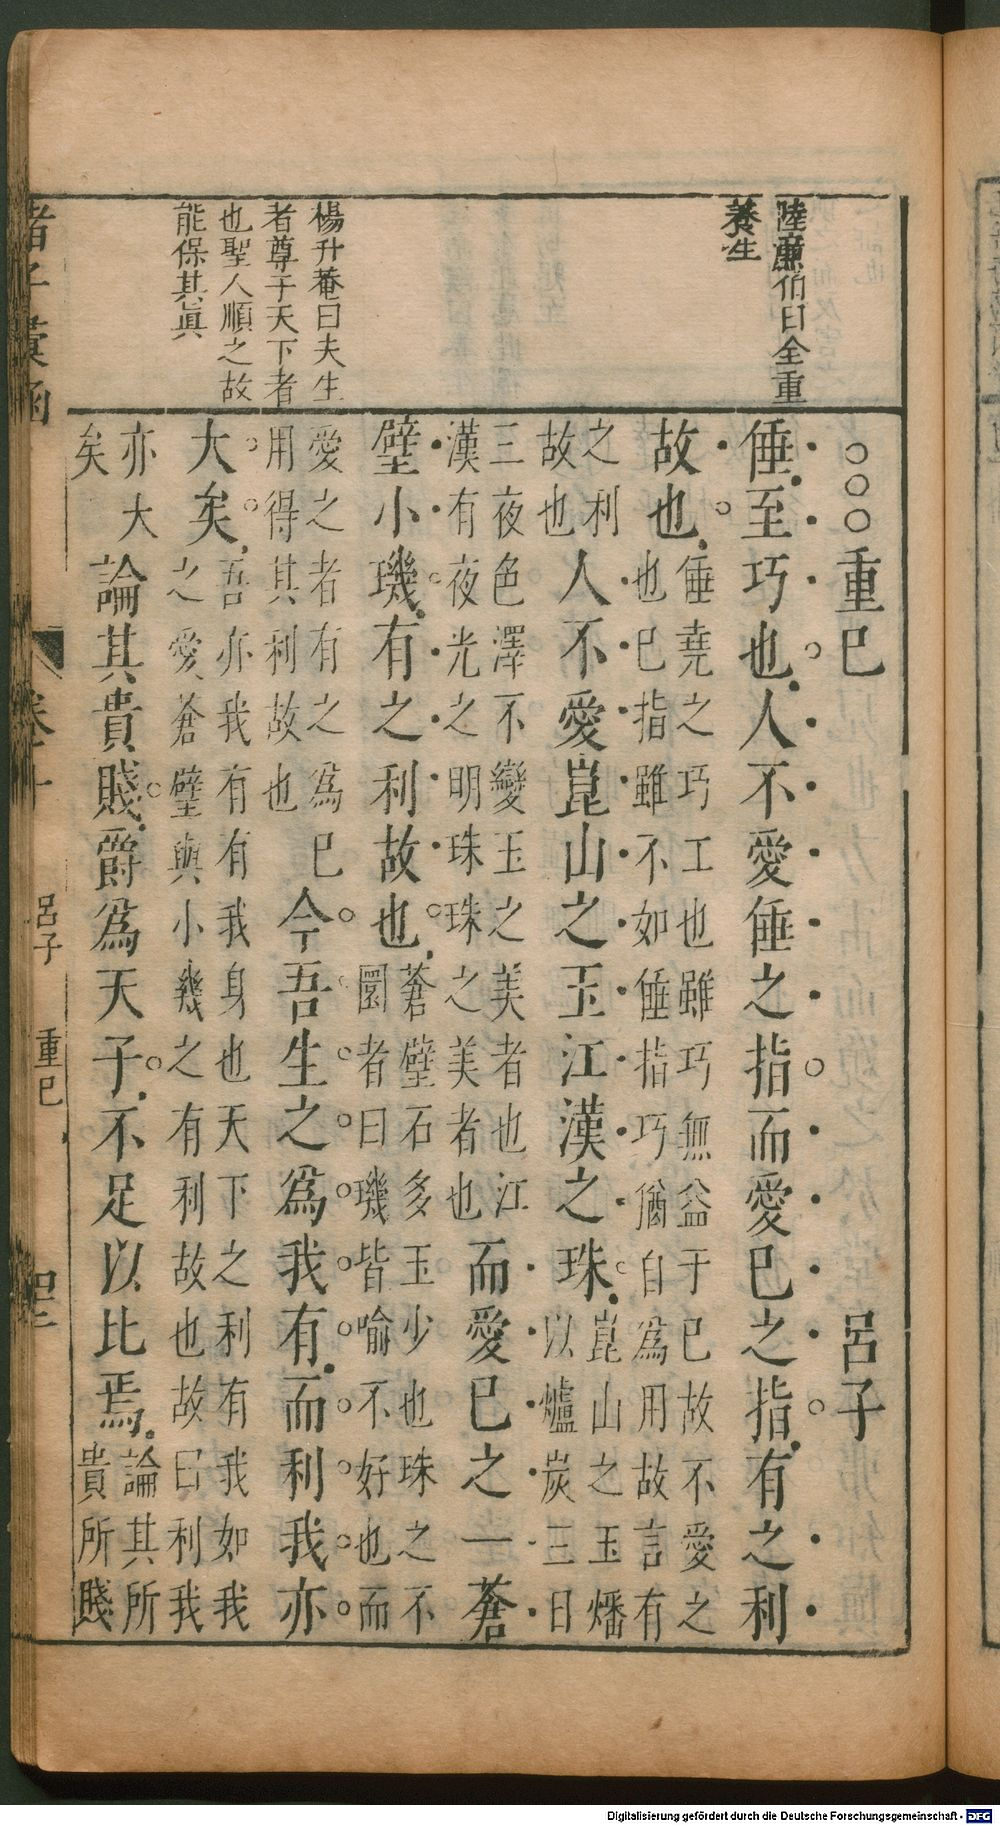 陸廉伯曰全重
養生
楊升菴曰夫生
者尊于天下者
也聖人順之故
能保其眞
○○○重巳 呂子
倕至巧也人不愛倕之指而愛巳之指有之利
故也倕堯之巧工也雖巧無益于巳故不愛之
也巳指雖不如倕指巧猶自爲用故言有
之利
故也人不愛崑山之玉江漢之珠崑山之玉燔
以爐炭三日
三夜色澤不變玉之美者也江
漢有夜光之明珠珠之美者也而愛巳之一蒼
璧小璣有之利故也蒼璧石多玉少也珠之不
圜者曰璣皆喻不好也而
愛之者有之爲巳
用得其利故也今吾生之爲我有而利我亦
大矣吾亦我有有我身也天下之利有我如我
之愛蒼璧與小幾之有利故也故曰利我
亦大
矣論其貴賤爵爲天子不足以比焉論其所
貴所賤
諸子彙函
卷十
呂子 重巳
Digitalisierung gefördert durch die Deutsche Forschungsgemeinschaft - DFG